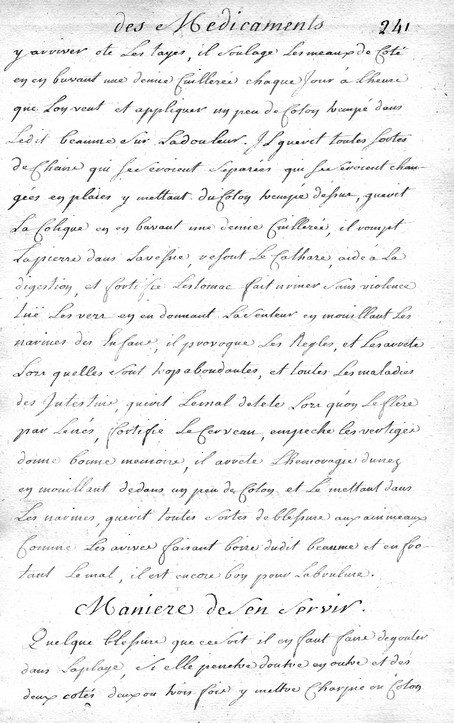 des Medicaments 241
y arriver ote Les tayes, il soulage Les maux de Coté
en en buvant une demie Cuillerée chaque Jour à Lheure
que Lon veut et appliquer un peu de Coton trempé dans
Ledit beaume sur Ladouleur. Il guerit toutes sortes
de Chaire qui se seroient separées qui se seroient chan-
gées en plaies y mettant du Coton trempé dessus, guerit
La Colique en en buvant une demie Cuillerée, il rompt
Lapierre dans Lavessie resout Le Cathare, aide à La
digestion, et fortifie Lestomac fait uriner sans violence
tüe Les vers en en donnant La senteur en mouillant Les
narines des Enfans, il provoque Les Regles, et Les arrete
Lors quelles sont trop abondantes, et toutes Les maladies
des Intestins, guerit Lemal detete Lors qu'on Le flere
par Lenés, fortifie Le Cerveau, empeche les vertiges
donne bonne memoire, il arrete Lhemoragie dunez
en mouillant dedans un peu de Coton et Le mettant dans
Les narines, guerit toutes sortes de blessure aux animeaux
Comme Les avives faisant boire dudit beaume et en fro-
tant Le mal, il est encore bon pour Labrulure.
Maniere de sen servir.
Quelque blessure que ce soit il en faut faire degouter
dans Laplaye, si elle penetre doutre en outre et des
deux cotés deux ou trois fois y mettre Charpie ou Coton